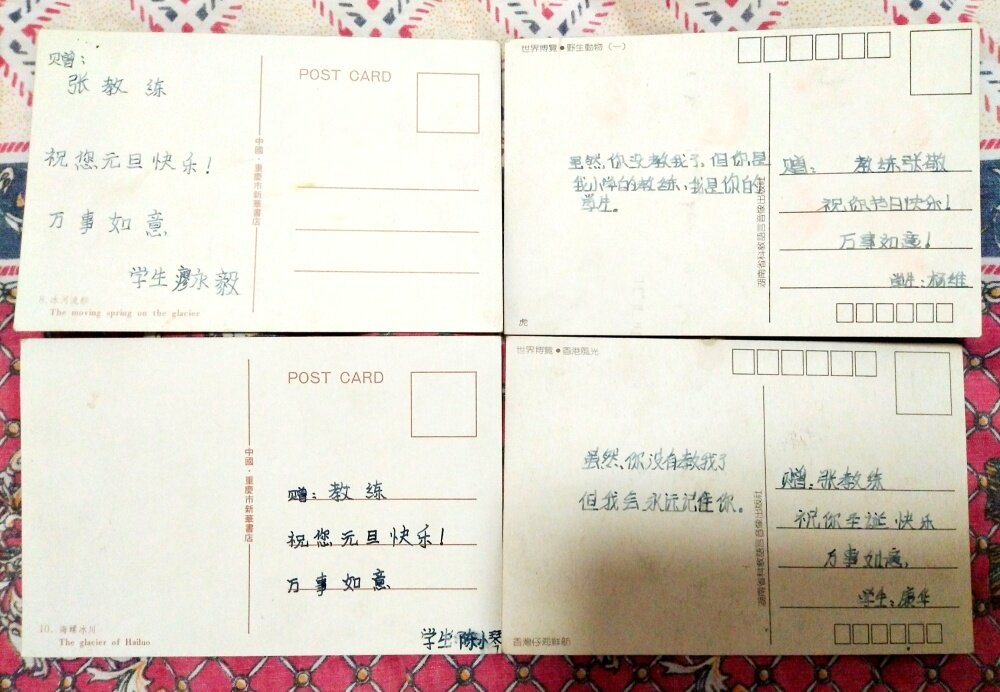 贝赠：
张教练
祝您元旦快乐！
万事如意
学生廖永毅
8.冰川流粉
The moving spring on the glacier
中國·重慶市新華書店
POST CARD
世界博覽●野生動物（一）
虽然，你没教我了，但你是
我小学的教练、我是你的
学生。
虎
湖南省科教語言音像出版社
赠：教练张敬
祝你节日快乐！
万事如意！
学生：杨维
POST CARD
中國·重慶市新華書店
赠：教练
祝您元旦快乐！
万事如意
学生 陈小琴
10. 海螺冰川
The glacier of Hailuo
世界博覽●香港風光
虽然，你没有教我了
但我会永远记住你。
香灣仔海鮮舫
湖南省科教語言音像出版社
赠：张教练
祝你圣诞快乐
万事如意，
学生：康华